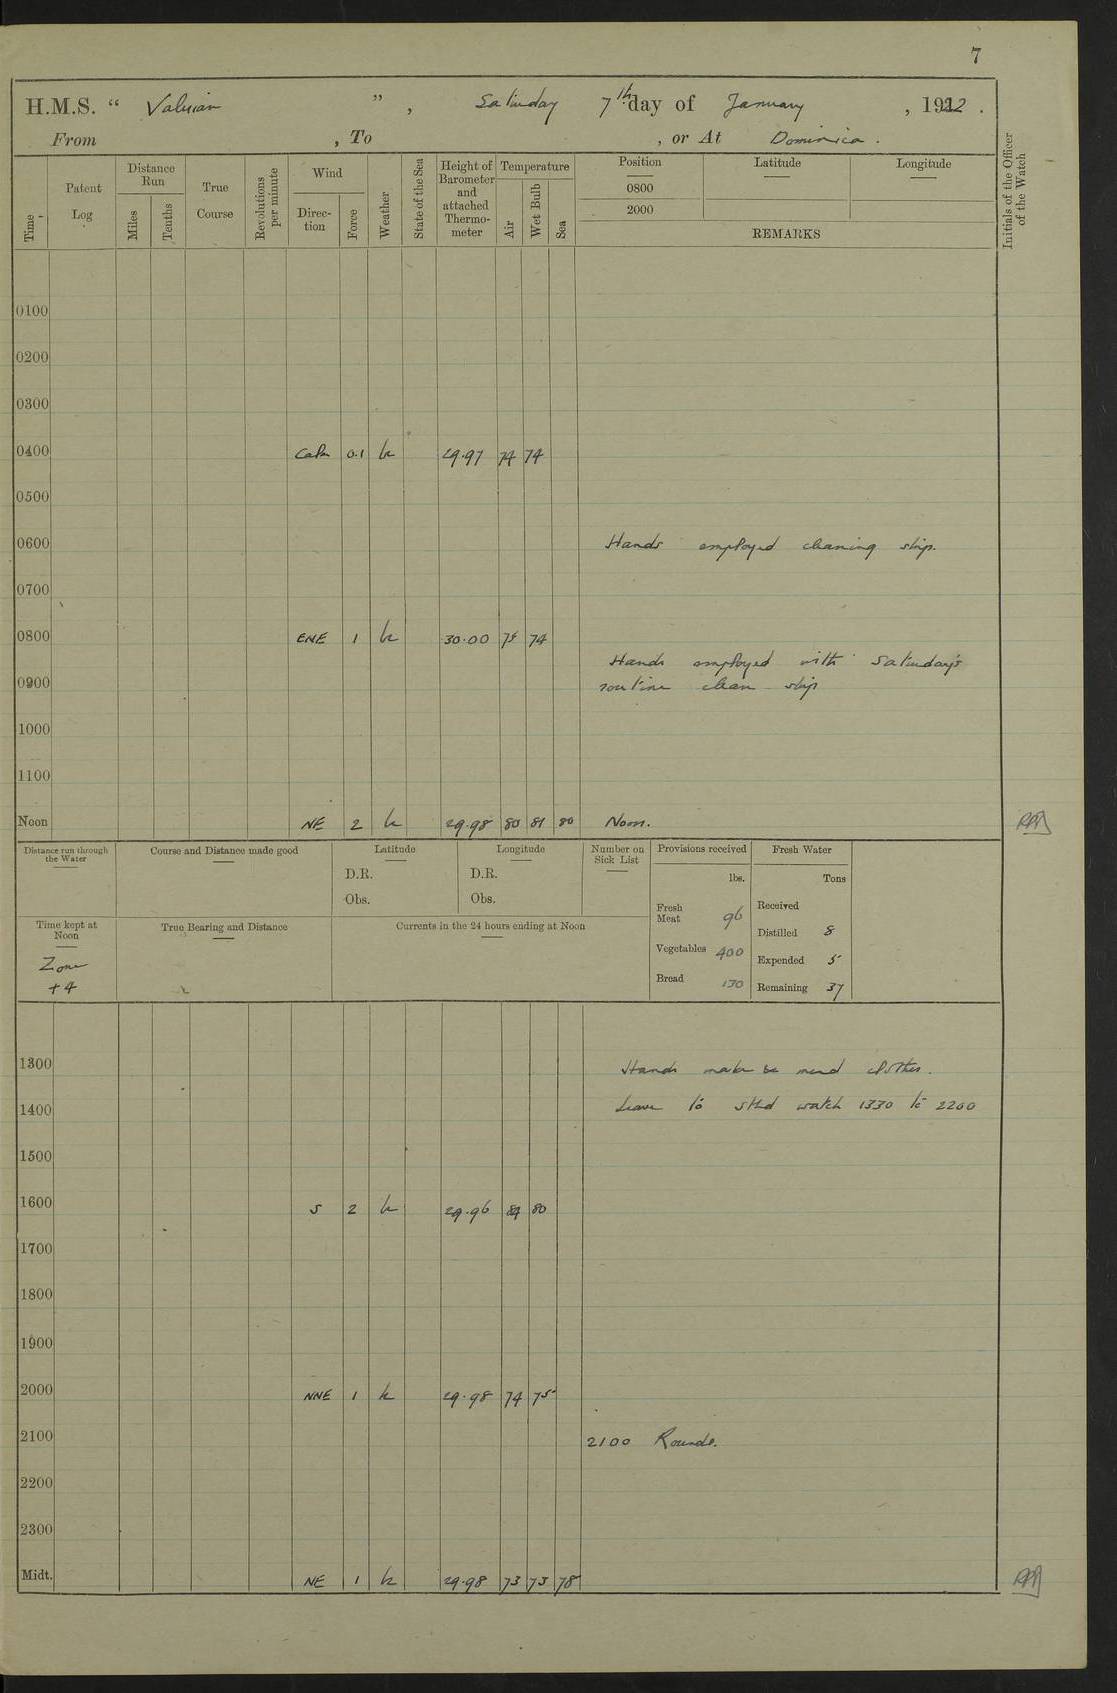 7
H.M.S. “ Valerian ” , Saturday 7th day of January , 1922 .
From , To , or At Dominica .
Time
Patent Log
Distance Run
Miles
Tenths
True Course
Revolutions per minute
Wind
Direc-tion
Force
Weather
State of the Sea
Height of Barometer and attached Thermo-meter
Temperature
Air
Wet Bulb
Sea
Position
0800
2000
Latitude
Longitude
REMARKS
Initials of the Officer of the Watch
0100
0200
0300
0400 Calm 0.1 29.97 74 74
0500
0600 Hands employed cleaning ship.
0700
0800 ENE 1 30.00 75 74
Hands employed with Saturday's
0900 routine clean ship
1000
1100
Noon NE 2 29.98 80 81 80 Noon.
Distance run through the Water
Course and Distance made good
Latitude
D.R.
Obs.
Longitude
D.R.
Obs.
Number on Sick List
Provisions received
lbs.
Fresh Meat 96
Vegetables 400
Bread 130
Fresh Water
Tons
Received
Distilled 8
Expended 5
Remaining 37
Time kept at Noon
Zone
+4
True Bearing and Distance
Currents in the 24 hours ending at Noon
1300 Hands make & mend clothes.
1400 Leave to stbd watch 1330 to 2200
1500
1600 S 2 29.96 84 80
1700
1800
1900
2000 NNE 1 29.98 74 75
2100 2100 Rounds.
2200
2300
Midt. NE 1 29.98 73 73 78